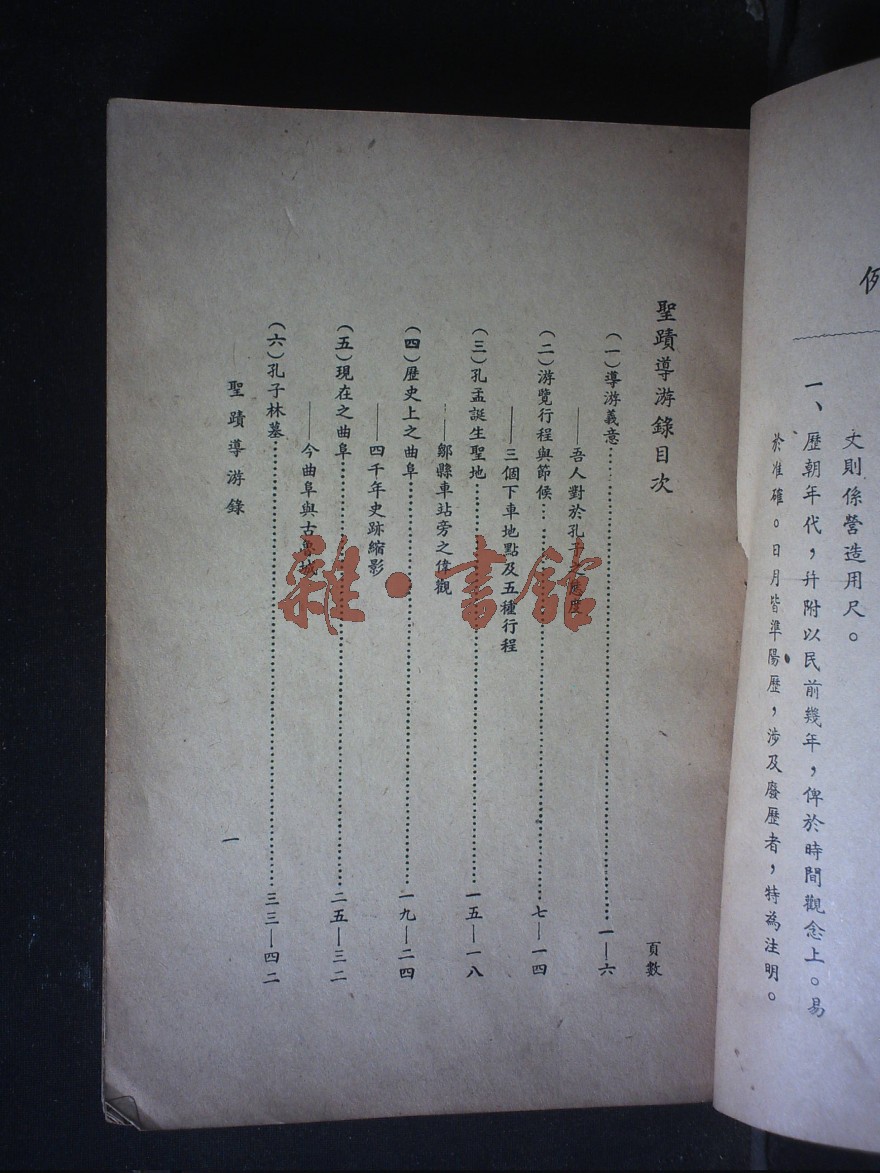 例
丈則係營造用尺。
一、歷朝年代，幷附以民前幾年，俾於時間觀念上。易
於准確。日月皆準陽歷，涉及廢歷者，特為注明。
聖蹟導游錄目次
頁數
（一）導游義意……一—六
——吾人對於孔子之態度
（二）游覽行程與節候……七—一四
——三個下車地點及五種行程
（三）孔孟誕生聖地……一五—一八
——鄒縣車站旁之偉觀
（四）歷史上之曲阜……一九—二四
——四千年史跡縮影
（五）現在之曲阜……二五—三二
——今曲阜與古魯城
（六）孔子林墓……三三—四二
聖蹟導游錄
一
雜·書館